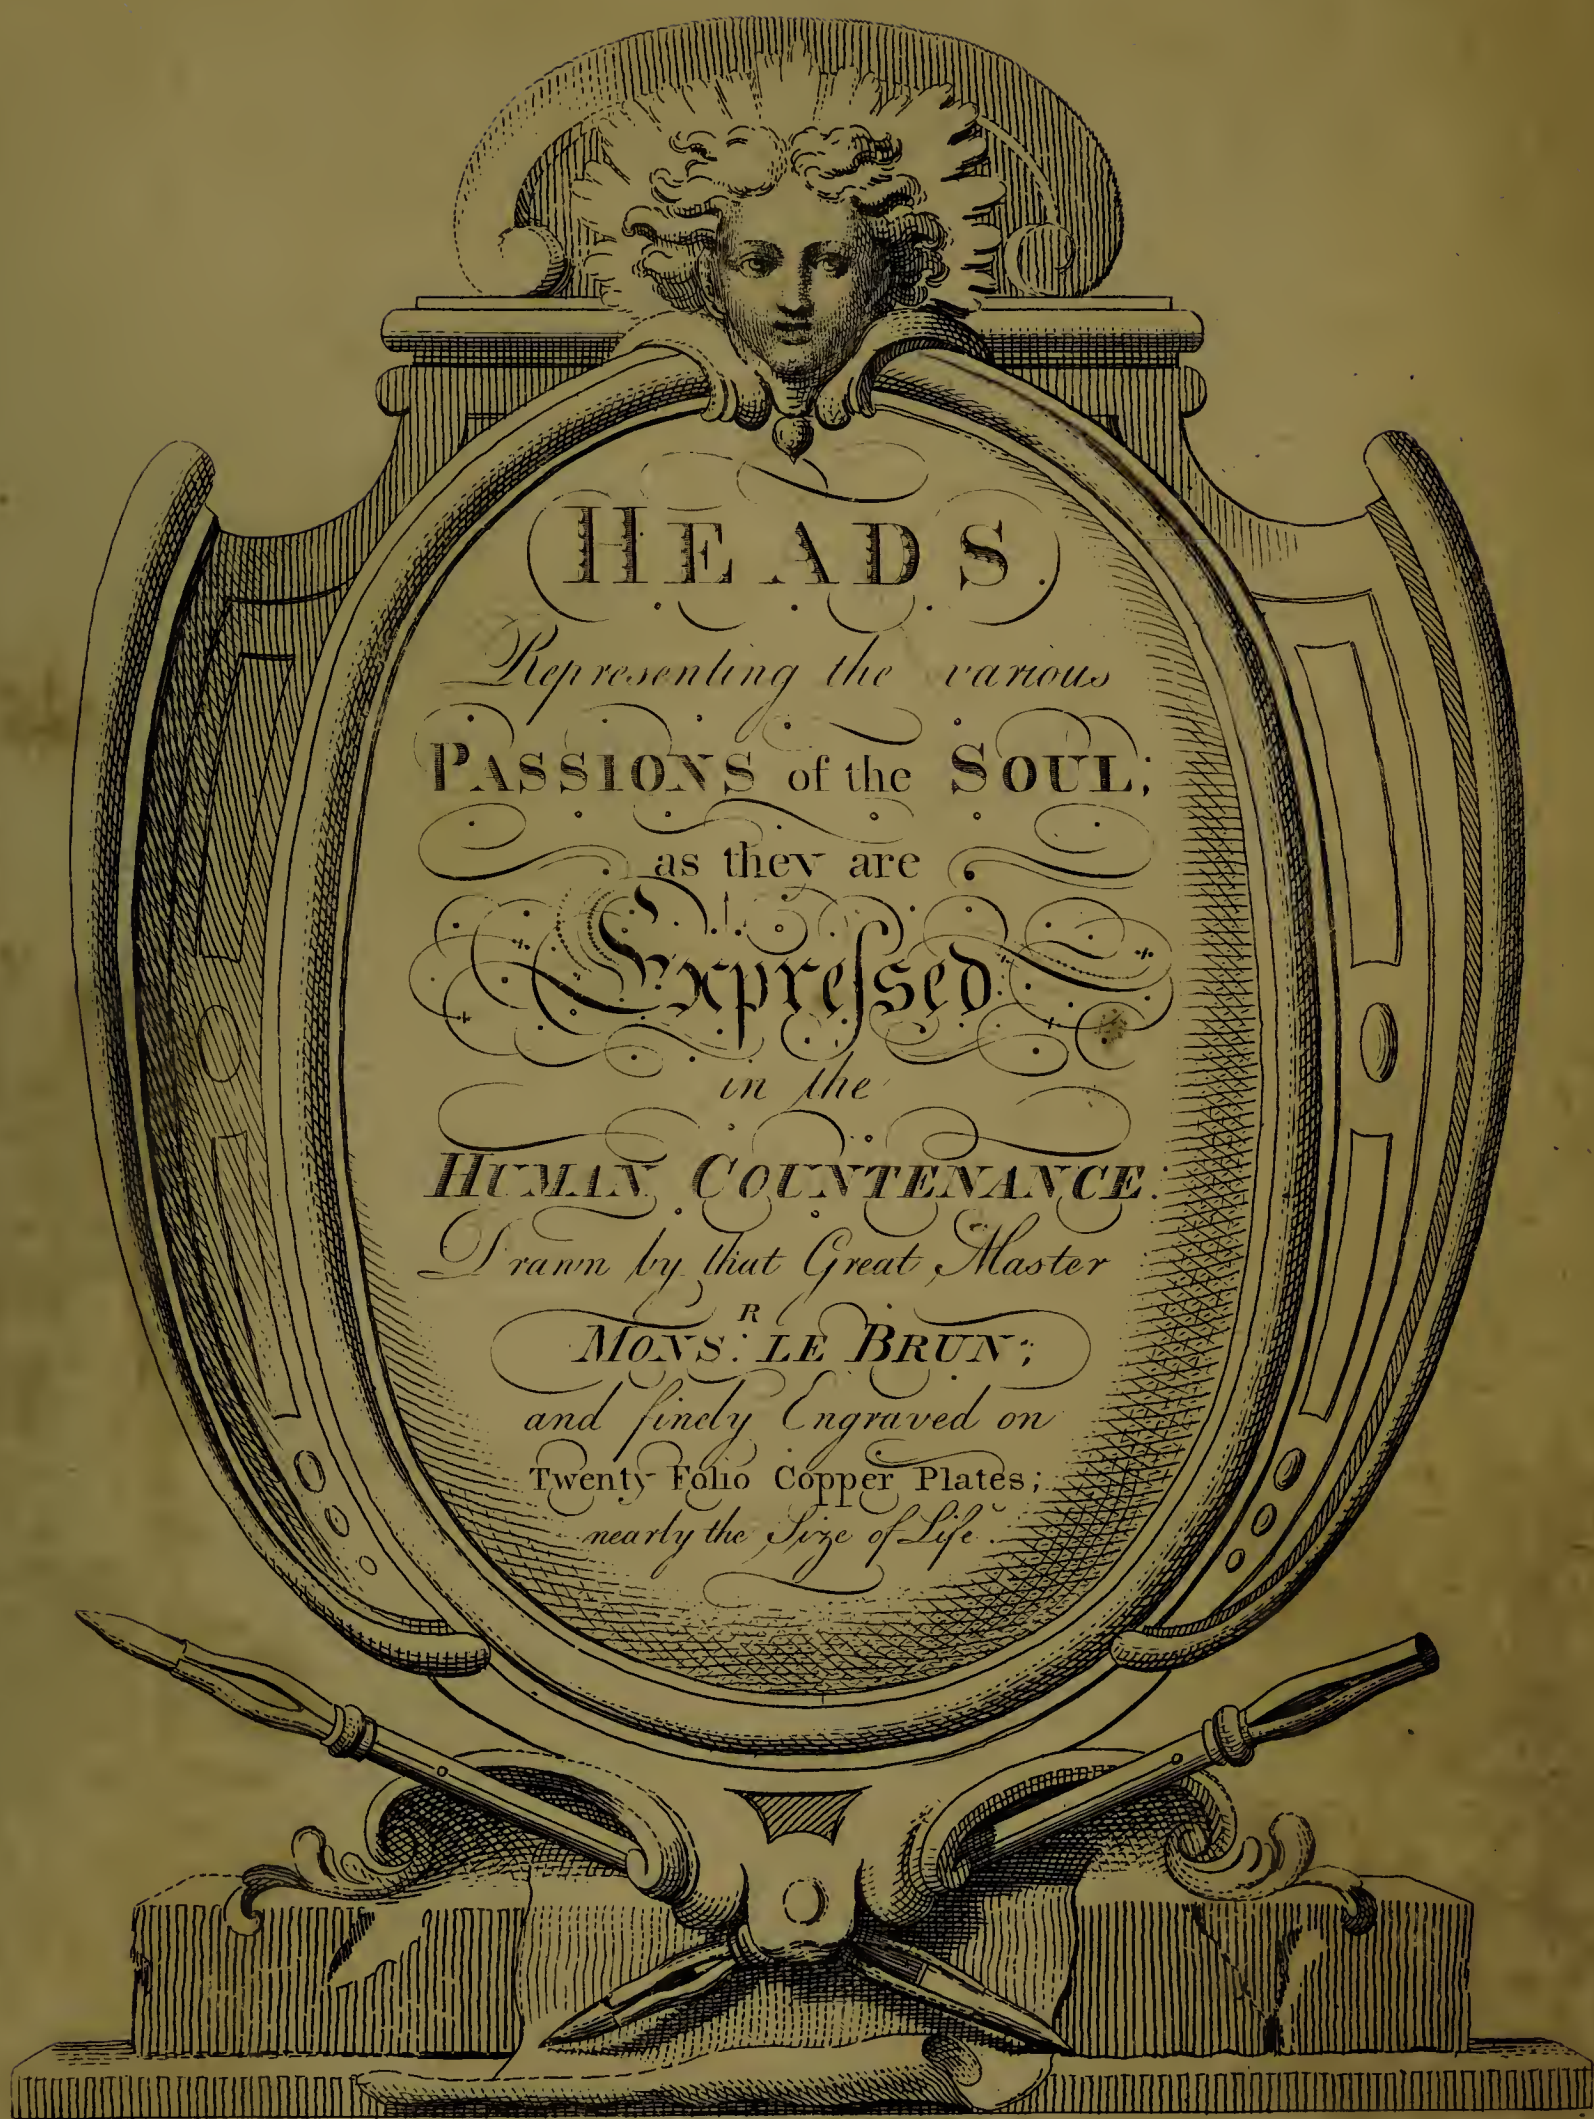 HEADS.
Representing the various
PASSIONS of the SOUL;
as they are
Expreſsed
in the
HUMAN COUNTENANCE:
Drawn by that Great Master
MONS.R LE BRUN;
and finely Engraved on
Twenty Folio Copper Plates;
nearly the Size of Life.